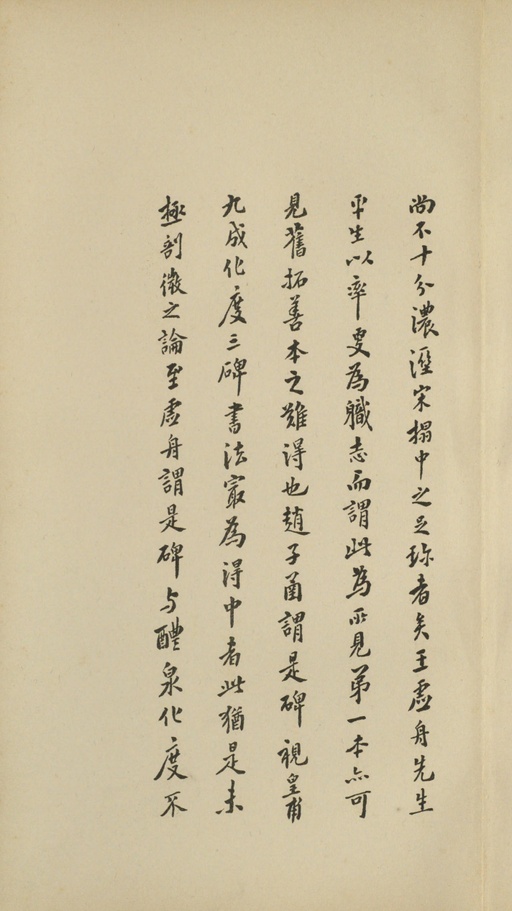 尚不十分濃溼宋搨中之足珍者矣王虛舟先生
平生以率更為職志而謂此為所見第一本亦可
見舊拓善本之難得也趙子函謂是碑視皇甫
九成化度三碑書法㝡為得中者此猶是未
極剖微之論至虛舟謂是碑与醴泉化度不